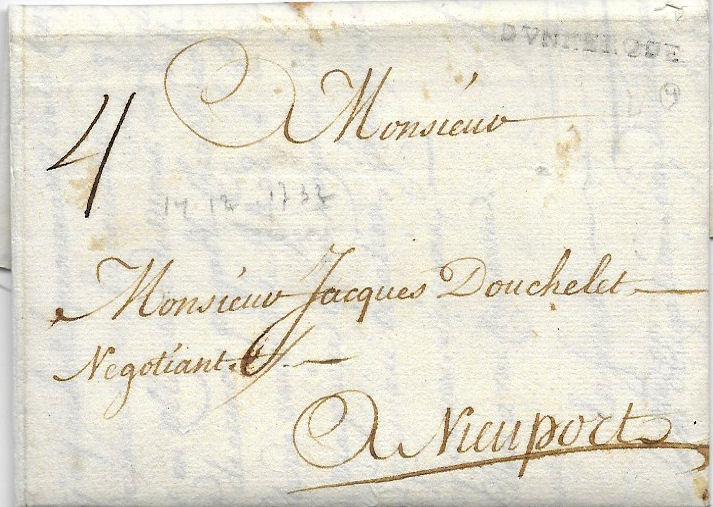 DVNKERQUE
A Monsieur
4
14 12 1732
Monsieur Jacques Douchelet
Negotiant
A Nieuport